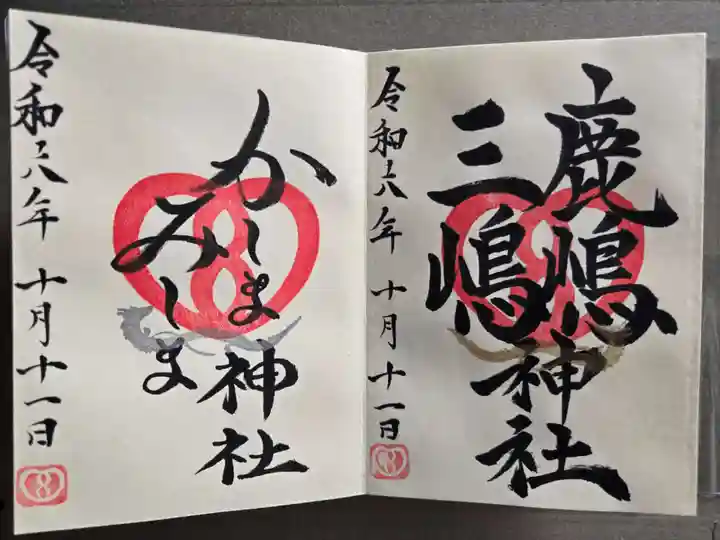 鹿嶋
三嶋
神社
令和六年 十月十一日
かしま
みしま
神社
令和六年 十月十一日